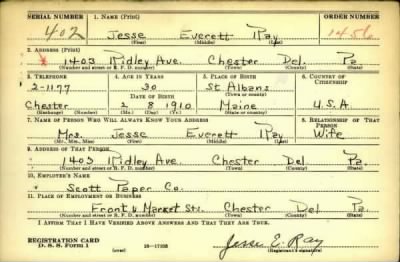 SERIAL NUMBER 1. NAME (Print) ORDER NUMBER
402 Jesse Everett Ray 1456
(First) (Middle) (Last)
2. ADDRESS (Print)
1403 Ridley Ave. Chester Del. Pa.
(Number and street or R. F. D. number) (Town) (County) (State)
3. TELEPHONE 4. AGE IN YEARS 5. PLACE OF BIRTH 6. COUNTRY OF CITIZENSHIP
2-1177 30 St Albans
DATE OF BIRTH (Town or county)
Chester 2 8 1910 Maine U.S.A.
(Exchange) (Number) (Mo.) (Day) (Yr.) (State or country)
7. NAME OF PERSON WHO WILL ALWAYS KNOW YOUR ADDRESS 8. RELATIONSHIP OF THAT PERSON
Mrs. Jesse Everett Ray Wife
(Mr., Mrs., Miss) (First) (Middle) (Last)
9. ADDRESS OF THAT PERSON
1403 Ridley Ave. Chester Del. Pa.
(Number and street or R. F. D. number) (Town) (County) (State)
10. EMPLOYER'S NAME
Scott Paper Co.
11. PLACE OF EMPLOYMENT OR BUSINESS
Front & Market Sts. Chester Del Pa.
(Number and street or R. F. D. number) (Town) (County) (State)
I AFFIRM THAT I HAVE VERIFIED ABOVE ANSWERS AND THAT THEY ARE TRUE.
REGISTRATION CARD
D. S. S. Form 1 (over) 16-17105 Jesse E. Ray
(Registrant's signature)